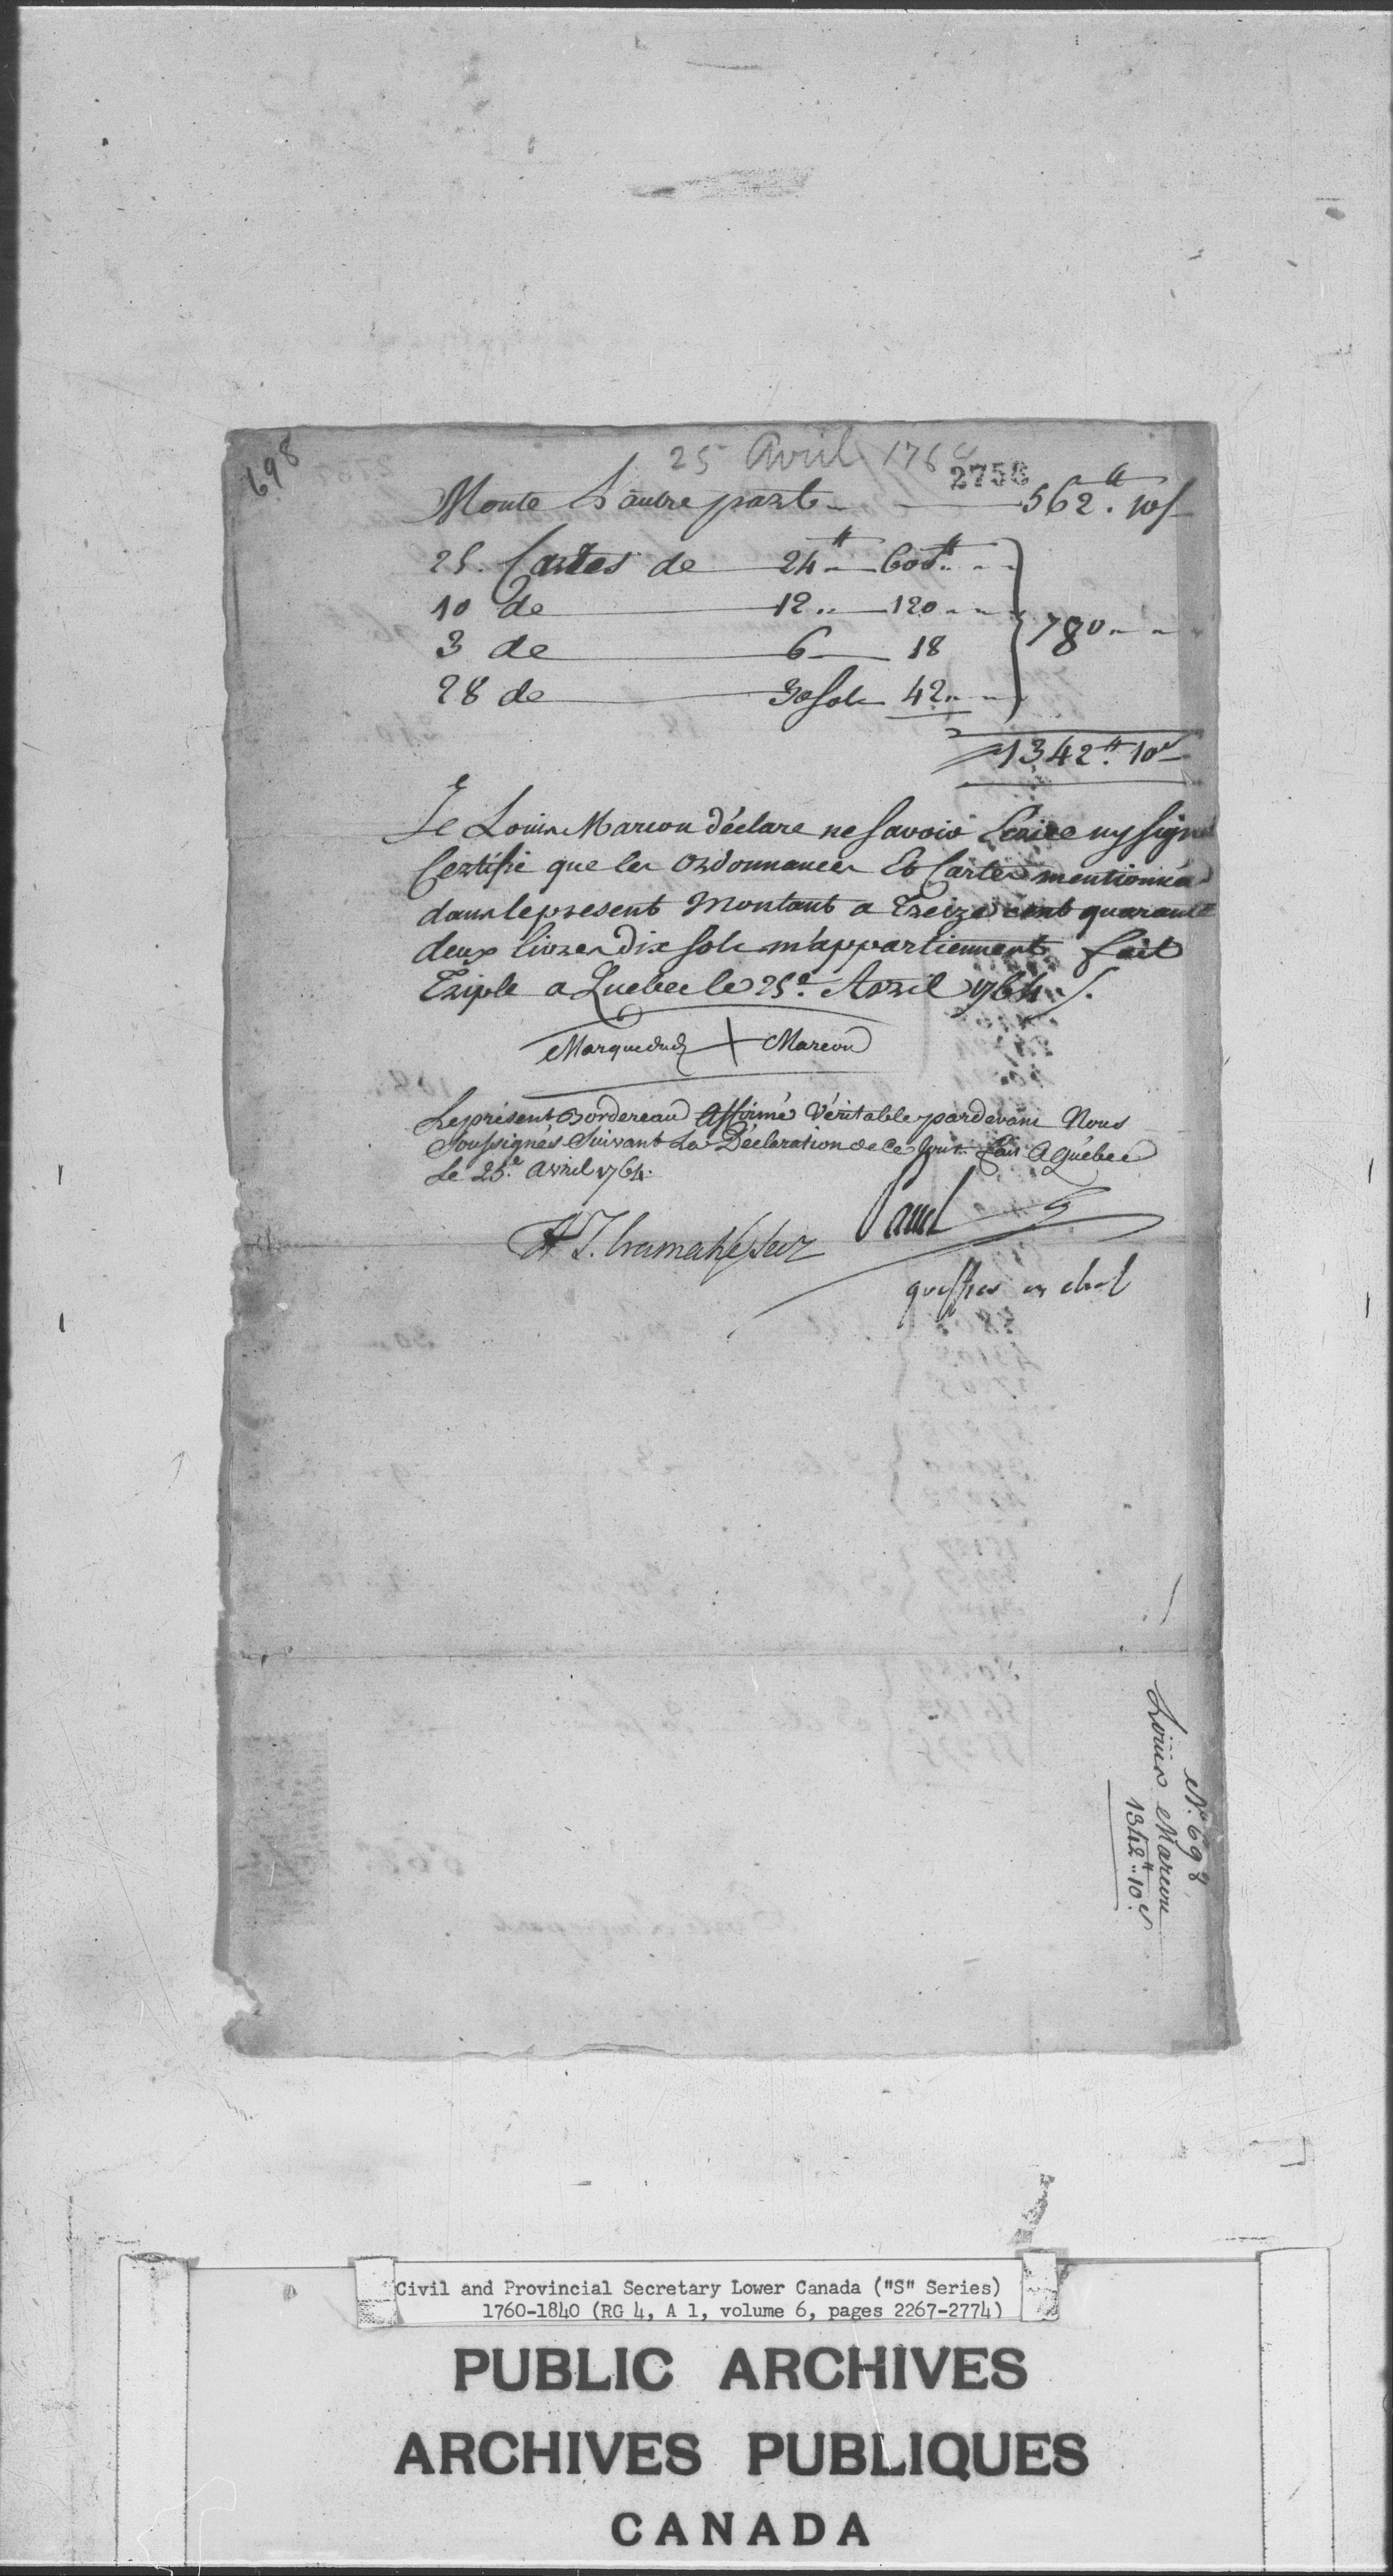 698
25 Avril 1764
2758
Monte L'autre part 562.# 10s
25. Cartes de 24# 600#
10 de 12 .. 120
3 de 6 18
28 de 30 sols 42..
780
1342.# 10s
Je Louis Marcou déclare ne Savoir Ecrire ny signé
Certifie que les Ordonnances Et Cartes mentionnés
dans le present Montant a Treize cent quarante
deux livres dix sols m'appartiennent fait
Triple a Quebec le 25e. Avril 1764 /.
Marque dud + Marcou
Le présent Bordereau Affirmé Véritable pardevant Nous
Soussignés Suivant La Déclaration de Ce Jour fait A Québec
Le 25e. avril 1764.
H T. Cramahé Secr
Panet
greffier en chef
No. 698
Louis Marcou
1342# " 10s.
Civil and Provincial Secretary Lower Canada ("S" Series)
1760-1840 (RG 4, A 1, volume 6, pages 2267-2774)
PUBLIC ARCHIVES
ARCHIVES PUBLIQUES
CANADA